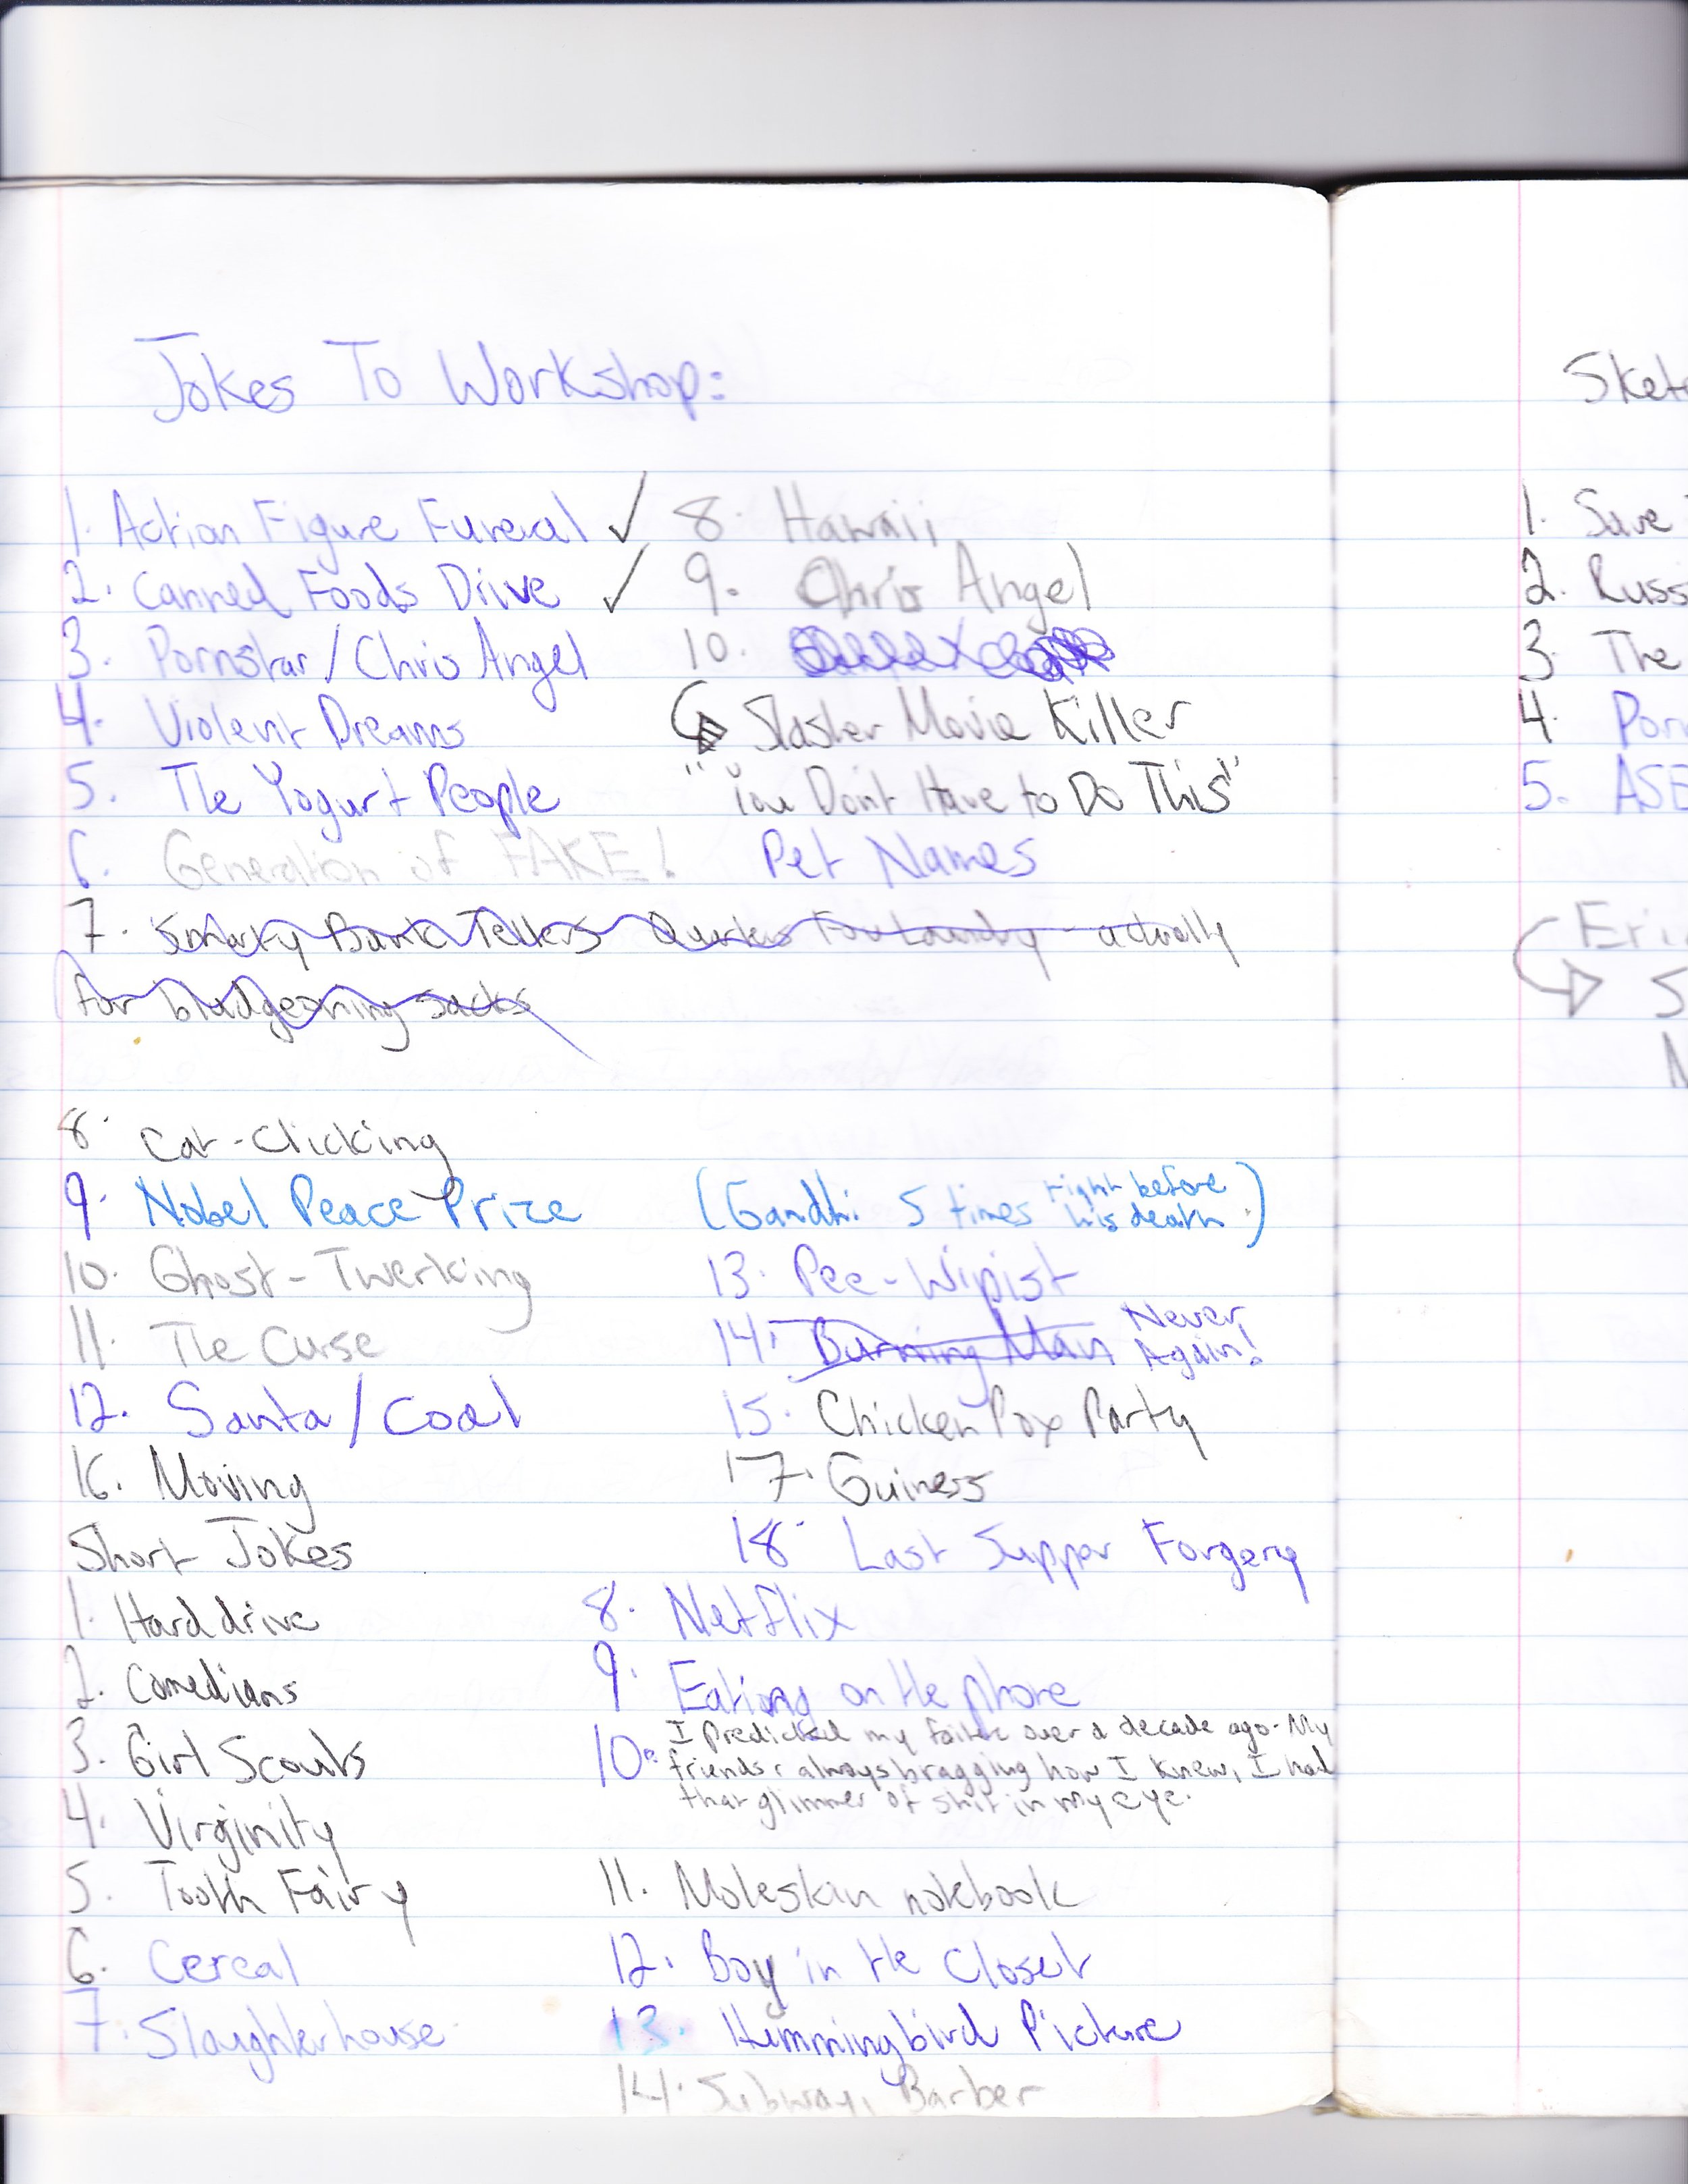 Jokes To Workshop:
1. Action Figure Funeral ✓
2. Canned Foods Drive ✓
3. Pornstar / Chris Angel
4. Violent Dreams
5. The Yogurt People
6. Generation of FAKE!
7. Snarky Bank Tellers Quarters For Laundry - actually
for bludgeoning sacks
8. Hawaii
9. Chris Angel
10.
Slasher Movie Killer
"You Don't Have to Do This"
Pet Names
8. Cat-Clicking
9. Nobel Peace Prize (Gandhi 5 times right before
his death.)
10. Ghost-Twerking
11. The Curse
12. Santa / Coal
16. Moving
13. Pee-Wipist
14. Burning Man Never
Again!
15. Chicken Pox Party
17. Guiness
18. Last Supper Forgery
Short Jokes
1. Hard drive
2. Comedians
3. Girl Scouts
4. Virginity
5. Tooth Fairy
6. Cereal
7. Slaughterhouse
8. Netflix
9. Eating on the phone
10. I predicted my failure over a decade ago. My
friends r always bragging how I knew, I had
that glimmer of shit in my eye.
11. Moleskin notebook
12. Boy in the Closet
13. Hummingbird Picture
14. Subway, Barber
Sket
1. Save
2. Russ
3. The
4. Porn
5. ASE
Eri
S